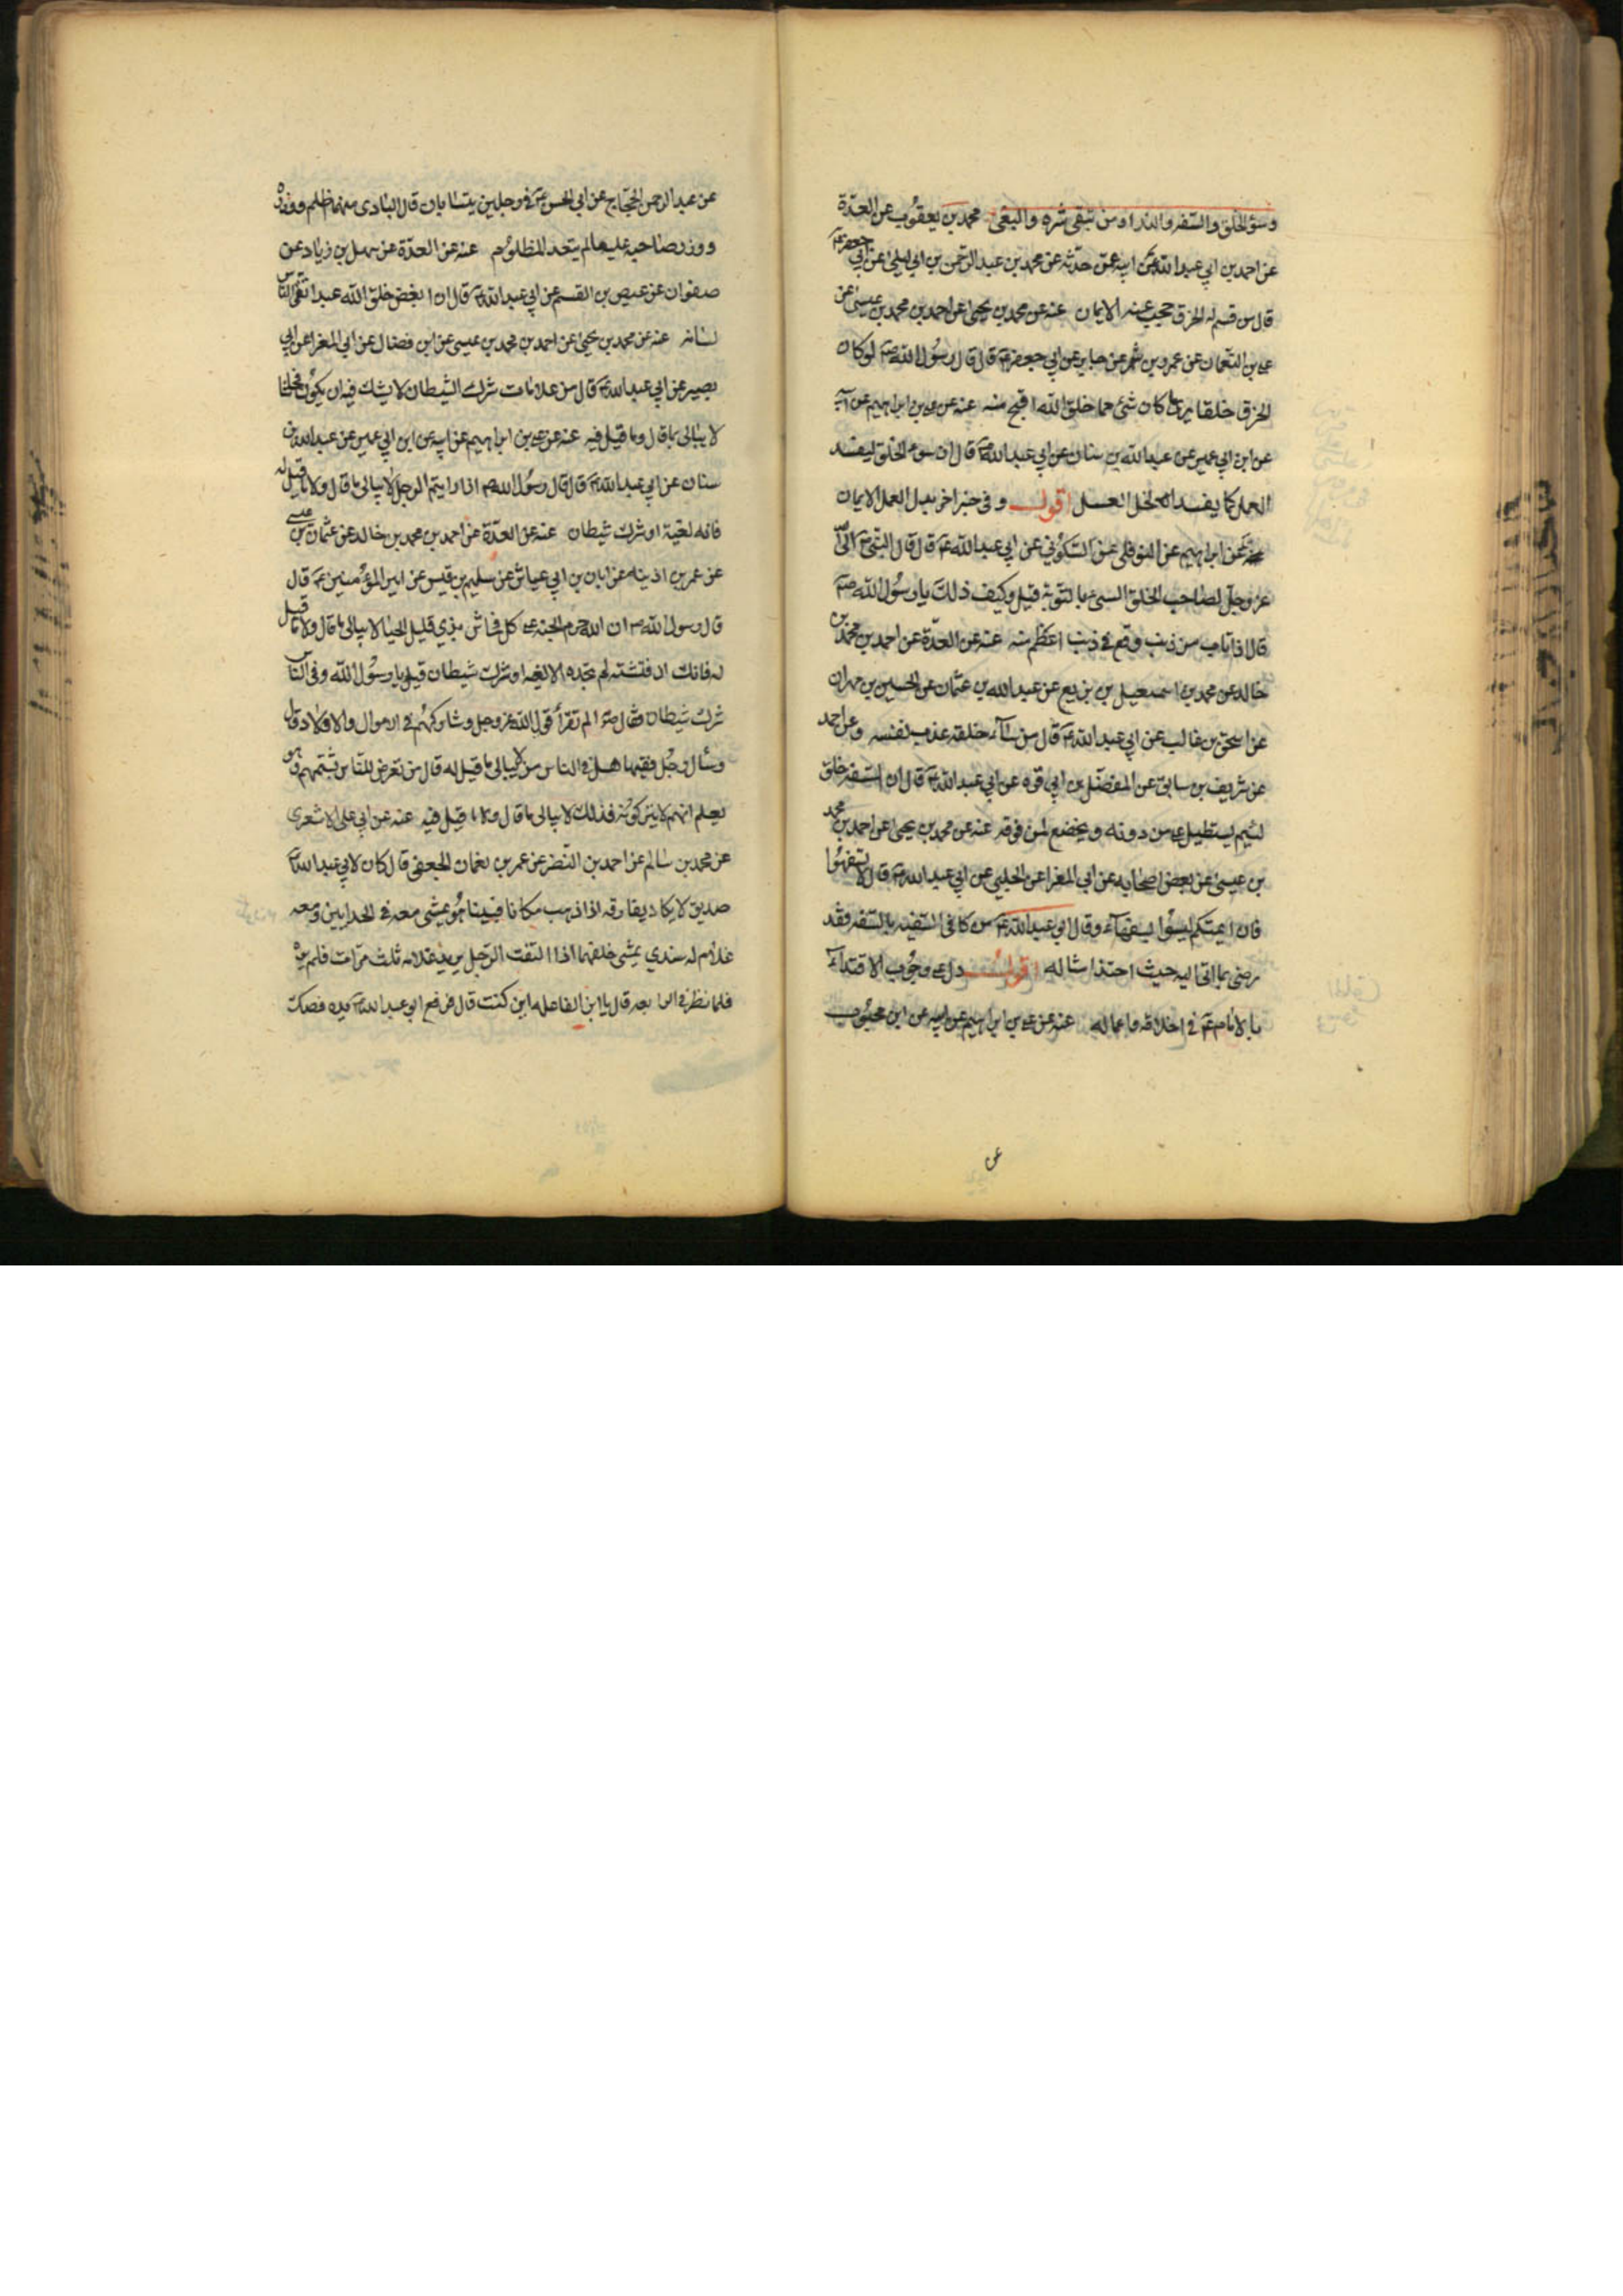 وسوء الخلق والسفه والبذاء ومن يتقى شره والبغى محمد بن يعقوب عن العدّة
عن احمد بن ابي عبد الله عن ابيه عمّن حدّثه عن محمد بن عبد الرحمن بن ابي ليلى عن ابي جعفر ع
قال من قسم له الخرق حجب عنه الايمان عنه عن محمد بن يحيى عن احمد بن محمد بن عيسى عن
على بن النعمان عن عمرو بن شمر عن جابر عن ابي جعفر ع قال قال رسول الله ص لو كان
الخرق خلقا يرى ما كان شئ مما خلق الله اقبح منه عنه عن على بن ابراهيم عن ابيه
عن ابن ابي عمير عن عبد الله بن سنان عن ابي عبد الله ع قال ان سوء الخلق ليفسد
العمل كما يفسد الخل العسل اقول وفى خبر اخر بدل العمل الايمان
عن ابراهيم عن النوفلى عن السكونى عن ابي عبد الله ع قال قال النبى ص ابى الله
عز وجل لصاحب الخلق السىء بالتوبة قيل وكيف ذلك يا رسول الله ص
قال اذا تاب من ذنب وقع في ذنب اعظم منه عنه عن العدّة عن احمد بن محمد بن
خالد عن محمد بن اسمعيل بن بزيع عن عبد الله بن عثمان عن الحسين بن مهران
عن اسحق بن غالب عن ابي عبد الله ع قال من ساء خلقه عذب نفسه وعن احمد
عن شريف بن سابق عن المفضّل بن ابي قره عن ابي عبد الله ع قال ان السفه خلق
لئيم يستطيل على من دونه ويخضع لمن فوقه عنه عن محمد بن يحيى عن احمد بن محمد
بن عيسى عن بعض اصحابه عن ابي المغرا عن الحلبي عن ابي عبد الله ع قال لا تسفهوا
فان ائمتكم ليسوا بسفهاء وقال ابو عبد الله ع من كافى السفيه بالسفه فقد
رضى بما اتى اليه حيث احتذا مثاله اقول دل على وجوب الاقتداء
بالامام ع في اخلاقه واعماله عنه عن على بن ابراهيم عن ابيه عن ابن محبوب
عن
عن عبد الرحمن الحجّاج عن ابى الحسن ع في رجلين يتسابان قال البادى منهما اظلم ووزره
ووزر صاحبه عليه ما لم يتعد المظلوم عنه عن العدّة عن سهل بن زياد عن
صفوان عن عيص بن القسم عن ابي عبد الله ع قال ان ابغض خلق الله عبد اتقى الناس
لسانه عنه عن محمد بن يحيى عن احمد بن محمد بن عيسى عن ابن فضال عن ابي المغرا عن ابي
بصير عن ابي عبد الله ع قال من علامات شرك الشيطان لا يشك فيه ان يكون فحاشا
لا يبالى بما قال وما قيل فيه عنه عن على بن ابراهيم عن ابيه عن ابن ابي عمير عن عبد الله بن
سنان عن ابي عبد الله ع قال قال رسول الله ص اذا رايتم الرجل لا يبالى ما قال ولا ما قيل له
فانه لغية او شرك شيطان عنه عن العدّة عن احمد بن محمد بن خالد عن عثمان بن عيسى
عن عمر بن اذينه عن ابان بن ابي عياش عن سليم بن قيس عن امير المؤمنين ع قال
قال رسول الله ص ان الله حرم الجنه على كل فحاش بذي قليل الحيا لا يبالى ما قال ولا ما قيل
له فانك ان فتشته لم تجده الا لغيه او شرك شيطان قيل يا رسول الله وفى الناس
شرك شيطان فقال ص الم تقرأ قول الله عز وجل وشاركهم في الاموال والاولاد قال
وسأل رجل فقيها هل في الناس من لا يبالى ما قيل له قال من تعرض للناس يشتمهم وهو
يعلم انهم لا يتركونه فذلك لا يبالى ما قال ولا ما قيل فيه عنه عن ابي على الاشعرى
عن محمد بن سالم عن احمد بن النضر عن عمر بن نعمان الجعفى قال كان لابي عبد الله ع
صديق لا يكاد يفارقه اذا ذهب مكانا فبينا هو يمشى معه في الحذايين ومعه
غلام له سندي يمشى خلفهما اذا التفت الرجل يريد غلامه ثلث مرات فلم يره
فلما نظر في الرابعه قال يا ابن الفاعله اين كنت قال فرفع ابو عبد الله ع يده فصك